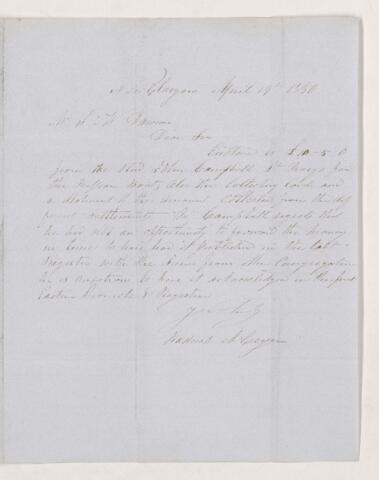 New Glasgow April 19th 1850
Mr J W Dawson
Dear Sir
Enclosed is £10-5-0
from the Revd John Campbell St Marys for
the Mission along also the Collecting card and
a statement of the amount Collected from the dif
ferent settlements Mr Campbell regrets that
he had not an opportunity to forward the money
in time to have had it published in the
Register with the sums from other Congregations
he is anxious to have it acknowledged in the
Eastern Chronicle & Register
Yours truly
Roderick McGregor